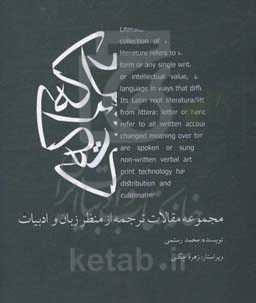 collection of
literature refers to
form or any single writ
or intellectual value,
language in ways that diff
Its Latin root literatura/litt
from littera: letter or hand
refer to all written accoun
changed meaning over tim
are spoken or sung
non-written verbal art
print technology ha
distribution and
مجموعه مقالات ترجمه از منظر زبان و ادبیات
نویسنده: محمد رستمی
ویراستار: زهره
ketab.ir